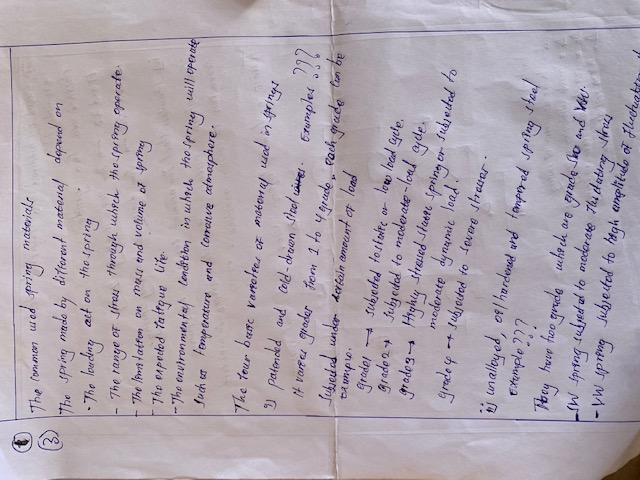 ①
③
The common used spring materials
The spring made by different material depend on
- The loading act on the spring
- The range of stress through which the spring operate.
- The limitation on mass and volume of spring
- The expected fatigue life.
- The environmental condition in which the spring will operate
such as temperature and corrosive atmosphere.
The four basic varieties of material used in springs
i) patended and cold-drawn steel wires. Examples ???
It varies grades from 1 to 4 grade, each grade can be
subjected under certain amount of load
Example.
grade1 → subjected to static or low load cycle.
grade2 → subjected to moderate-load cycle.
grade3 → Highly stressed static spring or subjected to
moderate dynamic load.
grade4 → subjected to severe stresses.
ii) unalloyed, oil hardened and tempered spring steel
example???
They have two grade which are grade SW and VW.
- SW spring subjected to moderate fluctuating stress
- VW spring subjected to high amplitude of fluctuation